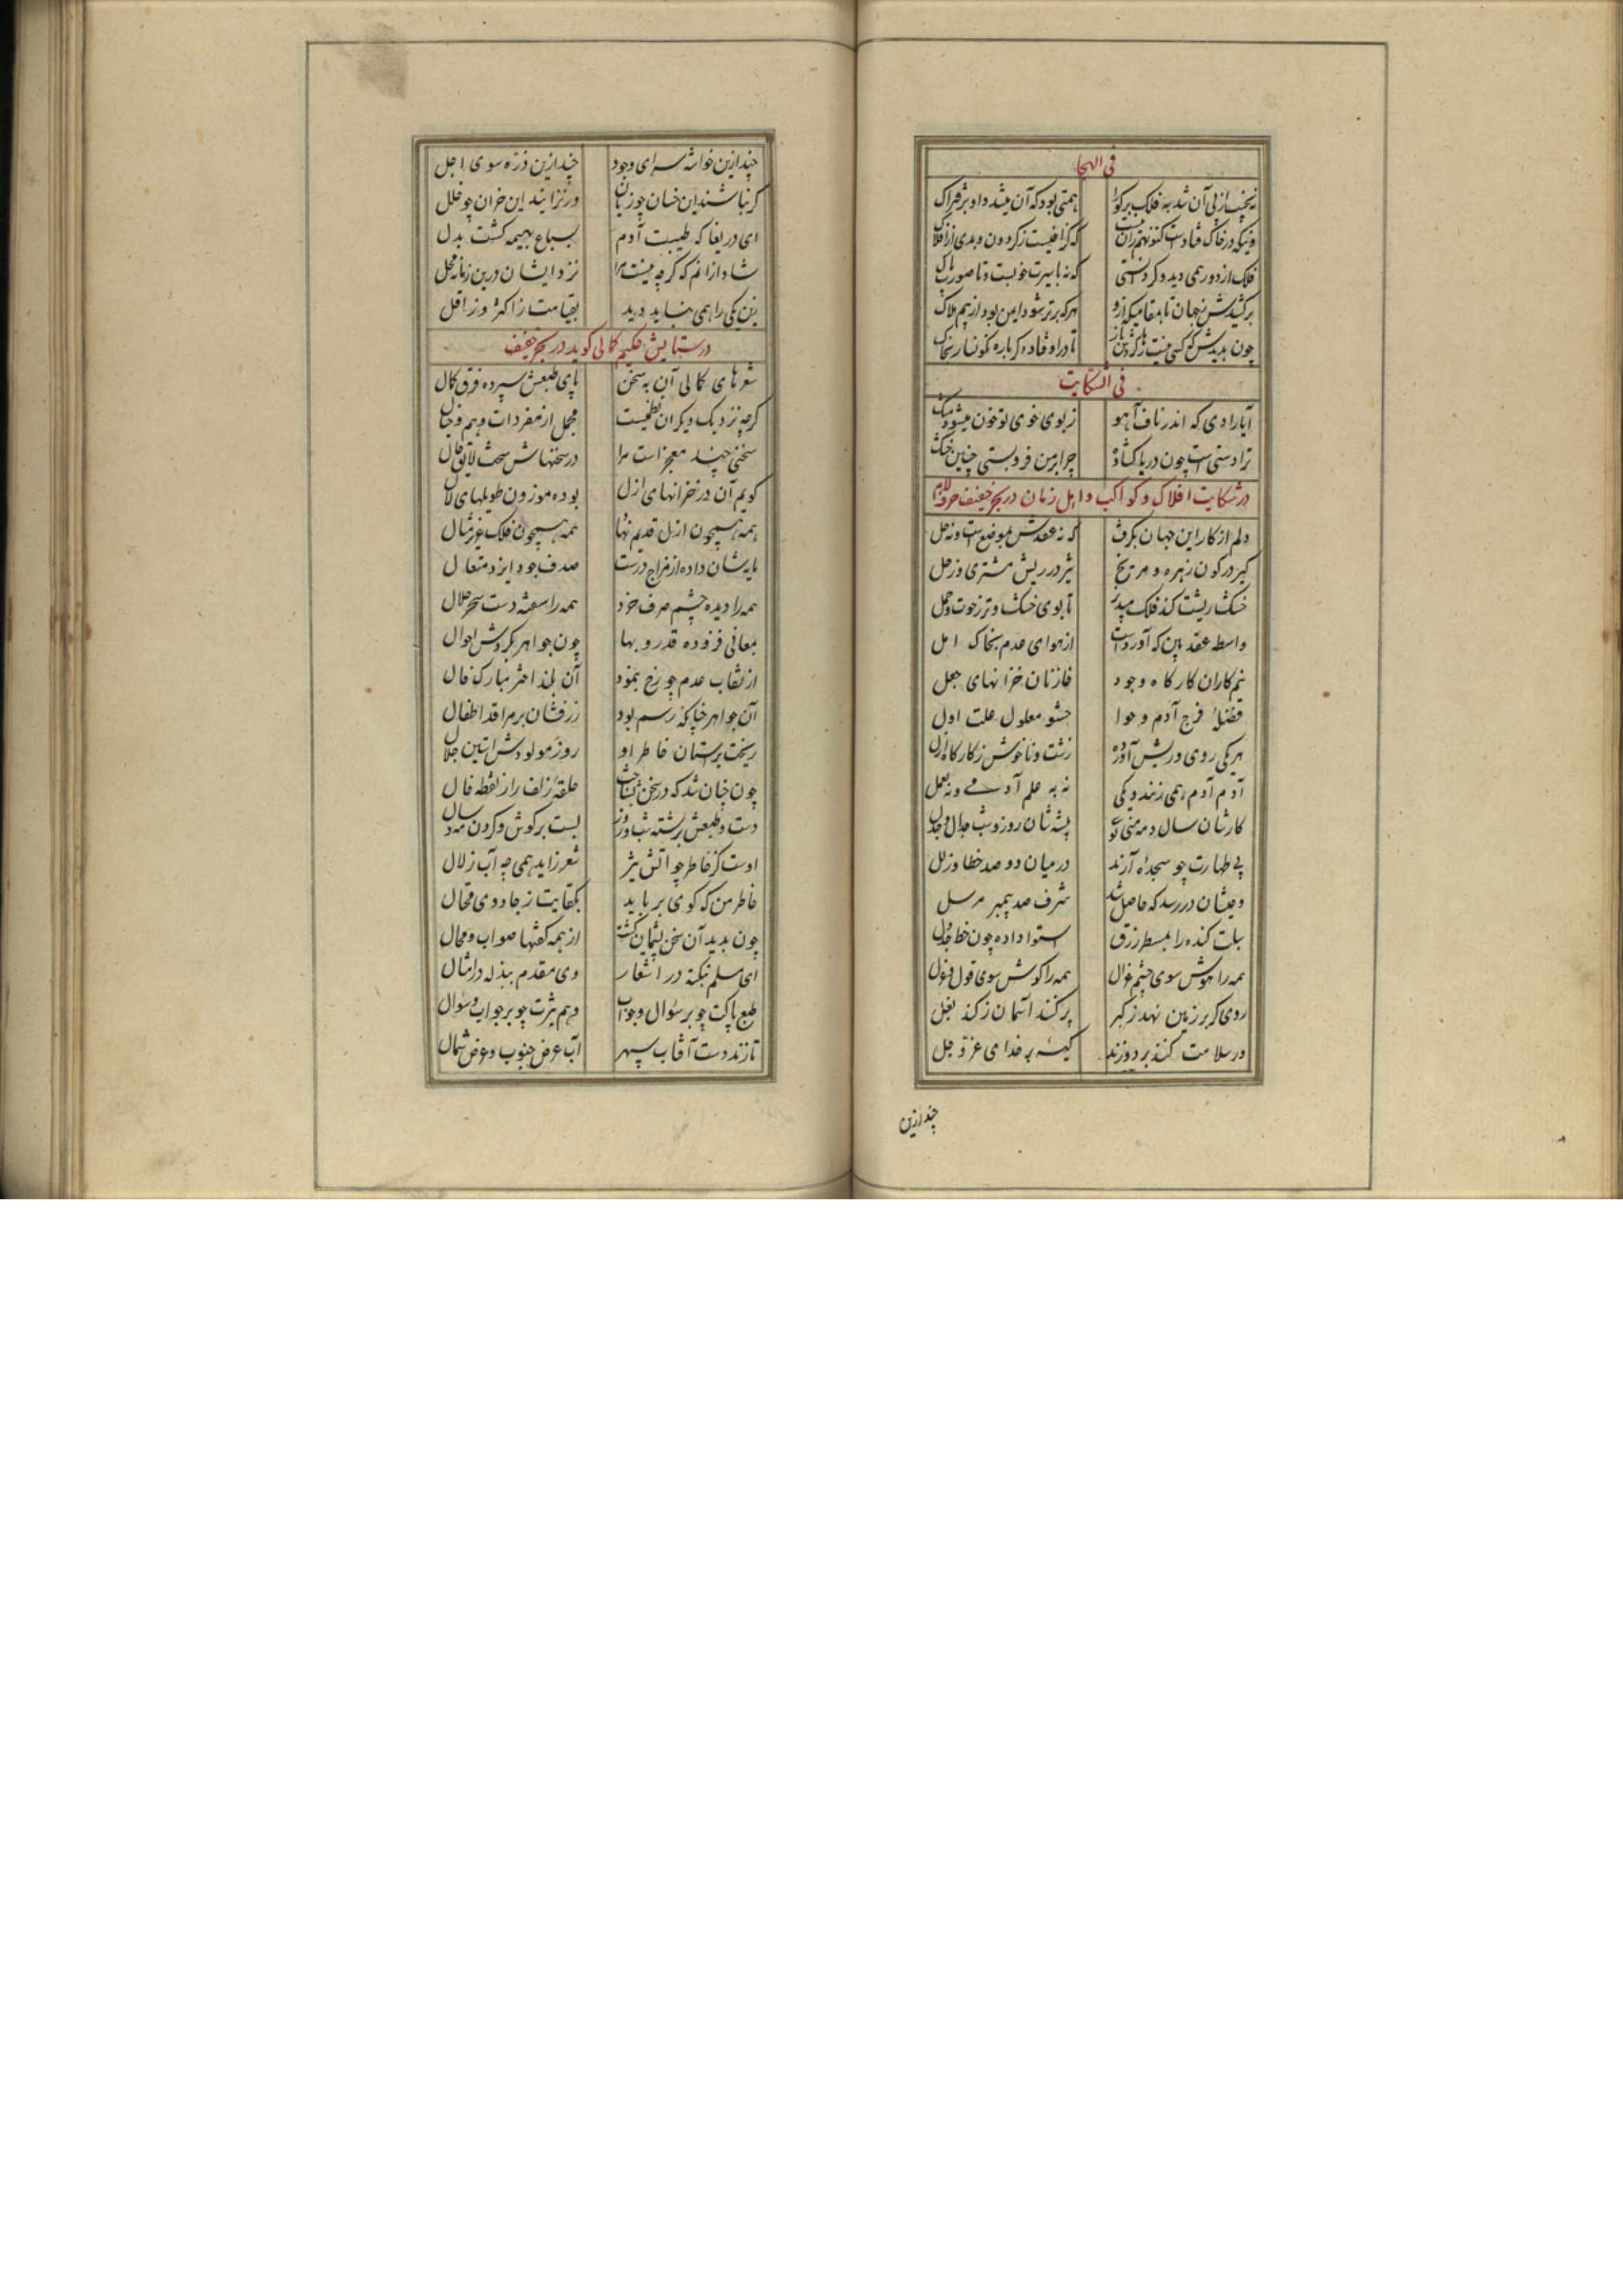 فی الهجا
همتی بود که آن میشد و او بر فتراک
فلک از دور همی دید و کر دانستی
فی الشکایت
آیا رادی که اندر ناف آهو ز بوی خوی تو خون میشود مشک
ترا دستی است چون دریا گشاده چرا بر من فروبستی چنین خشک
در شکایت افلاک و کواکب و اهل زمان در بحر خفیف
دلم از کار این جهان بگرفت که نه عقدش بموضع است و نه حل
کیر در کون زهره و مریخ تیز در ریش مشتری و زحل
خشک ریشت کند فلک تا بوی خشک و تر ز حوت و حمل
از هوای عدم بخاک امل
نیم کاران کارگاه وجود خازنان خزانهای حیل
فضلهٔ فرج آدم و حوا حشو معلول علت اول
هر یکی روی و ریش آورده زشت و ناخوش ز کارگاه ازل
آدم آدم همی زنند و یکی نه به علم آدمی و نه بعمل
کارشان سال و مه پیشه شان روز و شب جدال و جدل
بی طهارت چو سجدهٔ آرند در میان دو صد خطا و زلل
وحیشان در رسد که حاصل شد شرف صد پیمبر مرسل
استوا داده چون خط جدول
همه را هوش سوی چشم غزال همه را گوش سوی قول و غزل
روی اگر بر زمین نهند ز کبر پر کنند آسمان ز کند بغل
ور سلامت کنند بر دوزند کیسهٔ بر خدای عز و جل
چند ازین
چند ازین خواثه سرای وجود چند ازین ذره سوی اجل
گر نباشند این خسان چو زیان ور نزایند این خران چو خلل
ای دریغا که طیبت آدم بسباع بهیمه گشت بدل
شاد از آنم که گرچه نیست مرا نزد ایشان درین زمانه محل
زین یکی را همی نباید دید بقیامت ز اکثر و ز اقل
در ستایش حکیم کمالی گوید در بحر خفیف
شعرهای کمالی آن به سخن پای طبعش سپرده فرق کمال
گرچه نزدیک دیگران نظمیست مجمل از مفردات وهم و خیال
سخنی چند معجز است مرا در سخنهاش سخت لایق حال
گویم آن در خزانهای ازل بوده موزون طویلهای لآل
همه همچون ازل قدیم نهاد همه همچون فلک عزیز مثال
مایشان داده از مزاج درست صدف جود ایزد متعال
همه را دیده چشم صرف خرد همه را سفته دست سحر حلال
بمعانی فزوده قدر و بها چون جواهر بگردش احوال
از نقاب عدم چو رخ بنمود آن بلند اختر مبارک فال
آن جواهر چنانکه رسم بود زر فشان بر مراقد اطفال
ریخت برآستان خاطر او روز مولودش آستین جلال
چون چنان شد که در سخن بشناخت حلقهٔ زلف را ز نقطه خال
دست و طبعش برشته شب و روز بست بر گوش و گردن مه و سال
اوست کز خاطر چو آتش تیز شعر زاید همی چه آب زلال
خاطر من که گوی برباید بکفایت ز جادوی محتال
چون بدید آن سخن پشیمان گشت از همه گفتها صواب و محال
ای مسلم بنکته در اشعار وی مقدم ببذله در امثال
طبع پاکت چو بر سؤال وجواب وهم تیزت چو بر جواب وسؤال
تا زند دست آفتاب سپهر آب عرض جنوب و عرض شمال